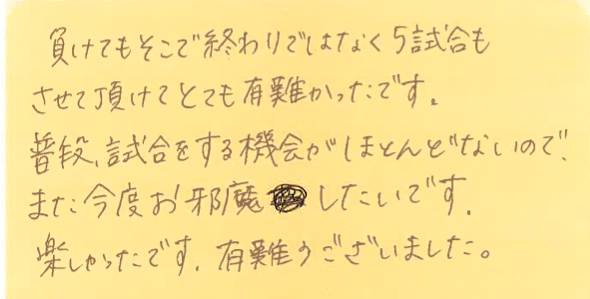 負けてもそこで終わりではなく5試合も
させて頂けてとても有難かったです。
普段、試合をする機会がほとんどないので、
また今度お邪魔したいです。
楽しかったです。有難うございました。